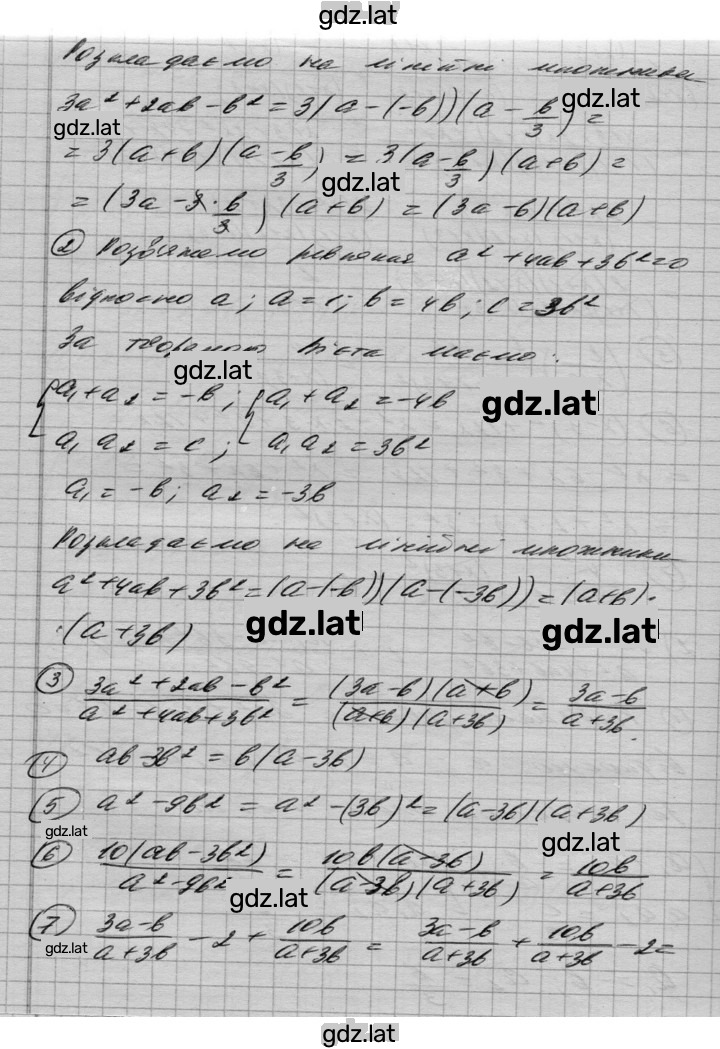 gdz.lat
Розкладаємо на лінійні множники
3a² + 2ab - b² = 3(a - (-b))(a - b/3) =
gdz.lat
gdz.lat
= 3(a + b)(a - b/3) = 3(a - b/3)(a + b) =
gdz.lat
= (3a - 3 · b/3)(a + b) = (3a - b)(a + b)
② Розв'яжемо рівняння a² + 4ab + 3b² = 0
відносно a; a = 1; b = 4b; c = 3b²
За теоремою Вієта маємо:
gdz.lat
{a₁ + a₂ = -b; {a₁ + a₂ = -4b
gdz.lat
a₁ a₂ = c; a₁ a₂ = 3b²
a₁ = -b; a₂ = -3b
Розкладаємо на лінійні множники
a² + 4ab + 3b² = (a - (-b))(a - (-3b)) = (a + b) ·
· (a + 3b)
gdz.lat
gdz.lat
③ (3a² + 2ab - b²)/(a² + 4ab + 3b²) = ((3a - b)(a + b))/((a + b)(a + 3b)) = (3a - b)/(a + 3b).
④ ab - 3b² = b(a - 3b)
⑤ a² - 9b² = a² - (3b)² = (a - 3b)(a + 3b)
gdz.lat
gdz.lat
⑥ (10(ab - 3b²))/(a² - 9b²) = (10b(a - 3b))/((a - 3b)(a + 3b)) = 10b/(a + 3b)
gdz.lat
⑦ (3a - b)/(a + 3b) - 2 + 10b/(a + 3b) = (3a - b)/(a + 3b) + 10b/(a + 3b) - 2 =
gdz.lat
gdz.lat